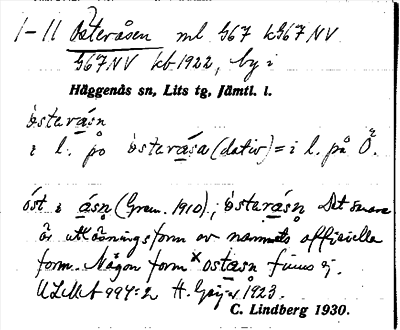 1-11 Österåsen ml G67 kG67NV
G67NV kb 1922, by i
Häggenås sn, Lits tg, Jämtl. l.
ö̀starå̱sn
i l. på ö̀starå̱sa (dativ) = i l. på Ö.
öst i å̱sn (Gran. 1910); ö̀starå̱sn Det senare
är utläsningsform av namnets officiella
form. Någon form ˣostå̱sn finns ej.
ULMA 994:2 H. 1923.
C. Lindberg 1930.